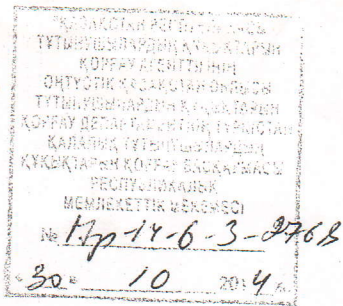 "ҚАЗАҚСТАН РЕСПУБЛИКАСЫ
ТҰТЫНУШЫЛАРДЫҢ ҚҰҚЫҚТАРЫН
ҚОРҒАУ АГЕНТТІГІНІҢ
ОҢТҮСТІК ҚАЗАҚСТАН ОБЛЫСЫ
ТҰТЫНУШЫЛАРДЫҢ ҚҰҚЫҚТАРЫН
ҚОРҒАУ ДЕПАРТАМЕНТІНІҢ ТҮРКІСТАН
ҚАЛАЛЫҚ ТҰТЫНУШЫЛАРДЫҢ
ҚҰҚЫҚТАРЫН ҚОРҒАУ БАСҚАРМАСЫ
РЕСПУБЛИКАЛЫҚ
МЕМЛЕКЕТТІК МЕКЕМЕСІ
№ Пр-14-6-3-2768
«30» 10 2014